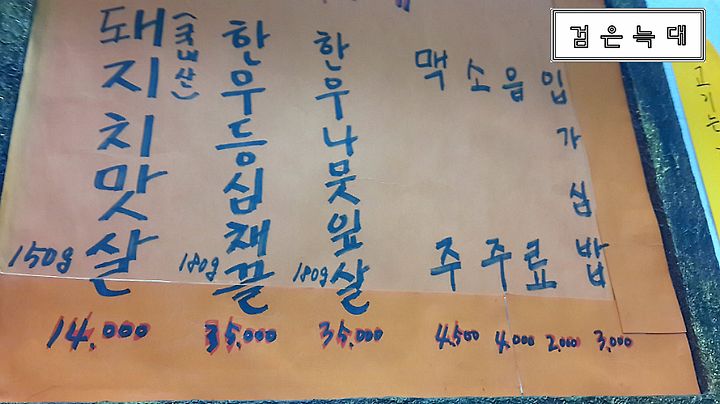 검은늑대
돼지치맛살
(국내산)
150g
14.000
한우등심채끝
180g
35.000
한우나뭇잎살
180g
35.000
맥주
4.500
소주
4.000
음료
2.000
입가심밥
3.000
고기는